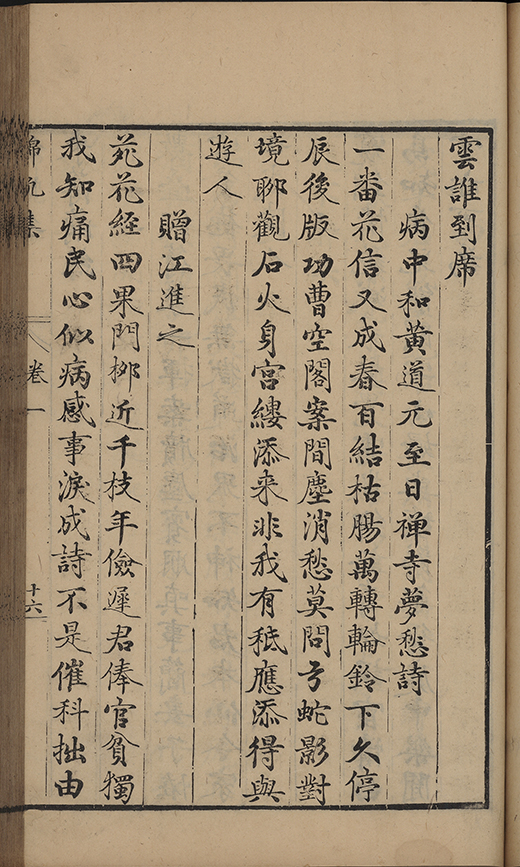 雲誰到席
病中和黄道元至日禅寺夢愁詩
一番花信又成春百結枯腸萬轉輪鈴下久停
辰後版功曹空閣案間塵消愁莫問弓蛇影對
境聊觀石火身宮縷添来非我有秪應添得與
遊人
贈江進之
苑花經四果門栁近千枝年儉遲君俸官貧獨
我知痛民心似病感事淚成詩不是催科拙由
錦帆集 卷一 十六